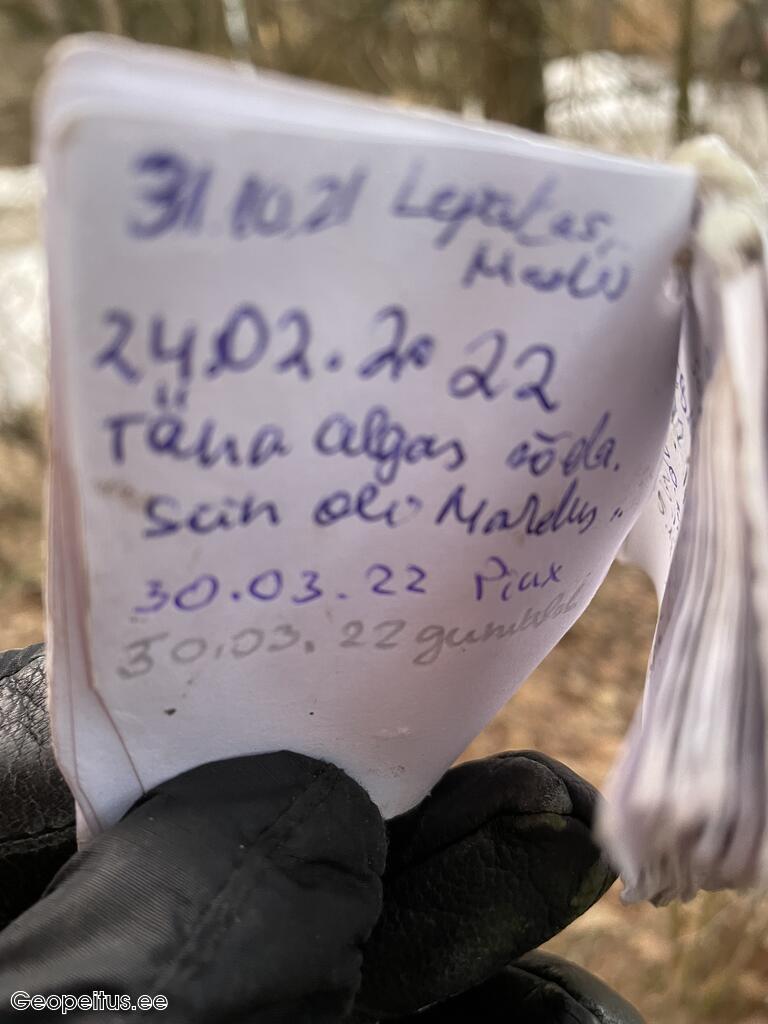 31.10.21 Lepatas,
24.02.2022
Täna algas sõda.
Siin oli Mardus..
30.03.22 Piux
30.03.22
Geopeitus.ee